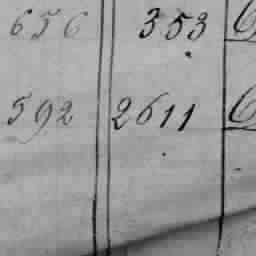 656 353
592 2611